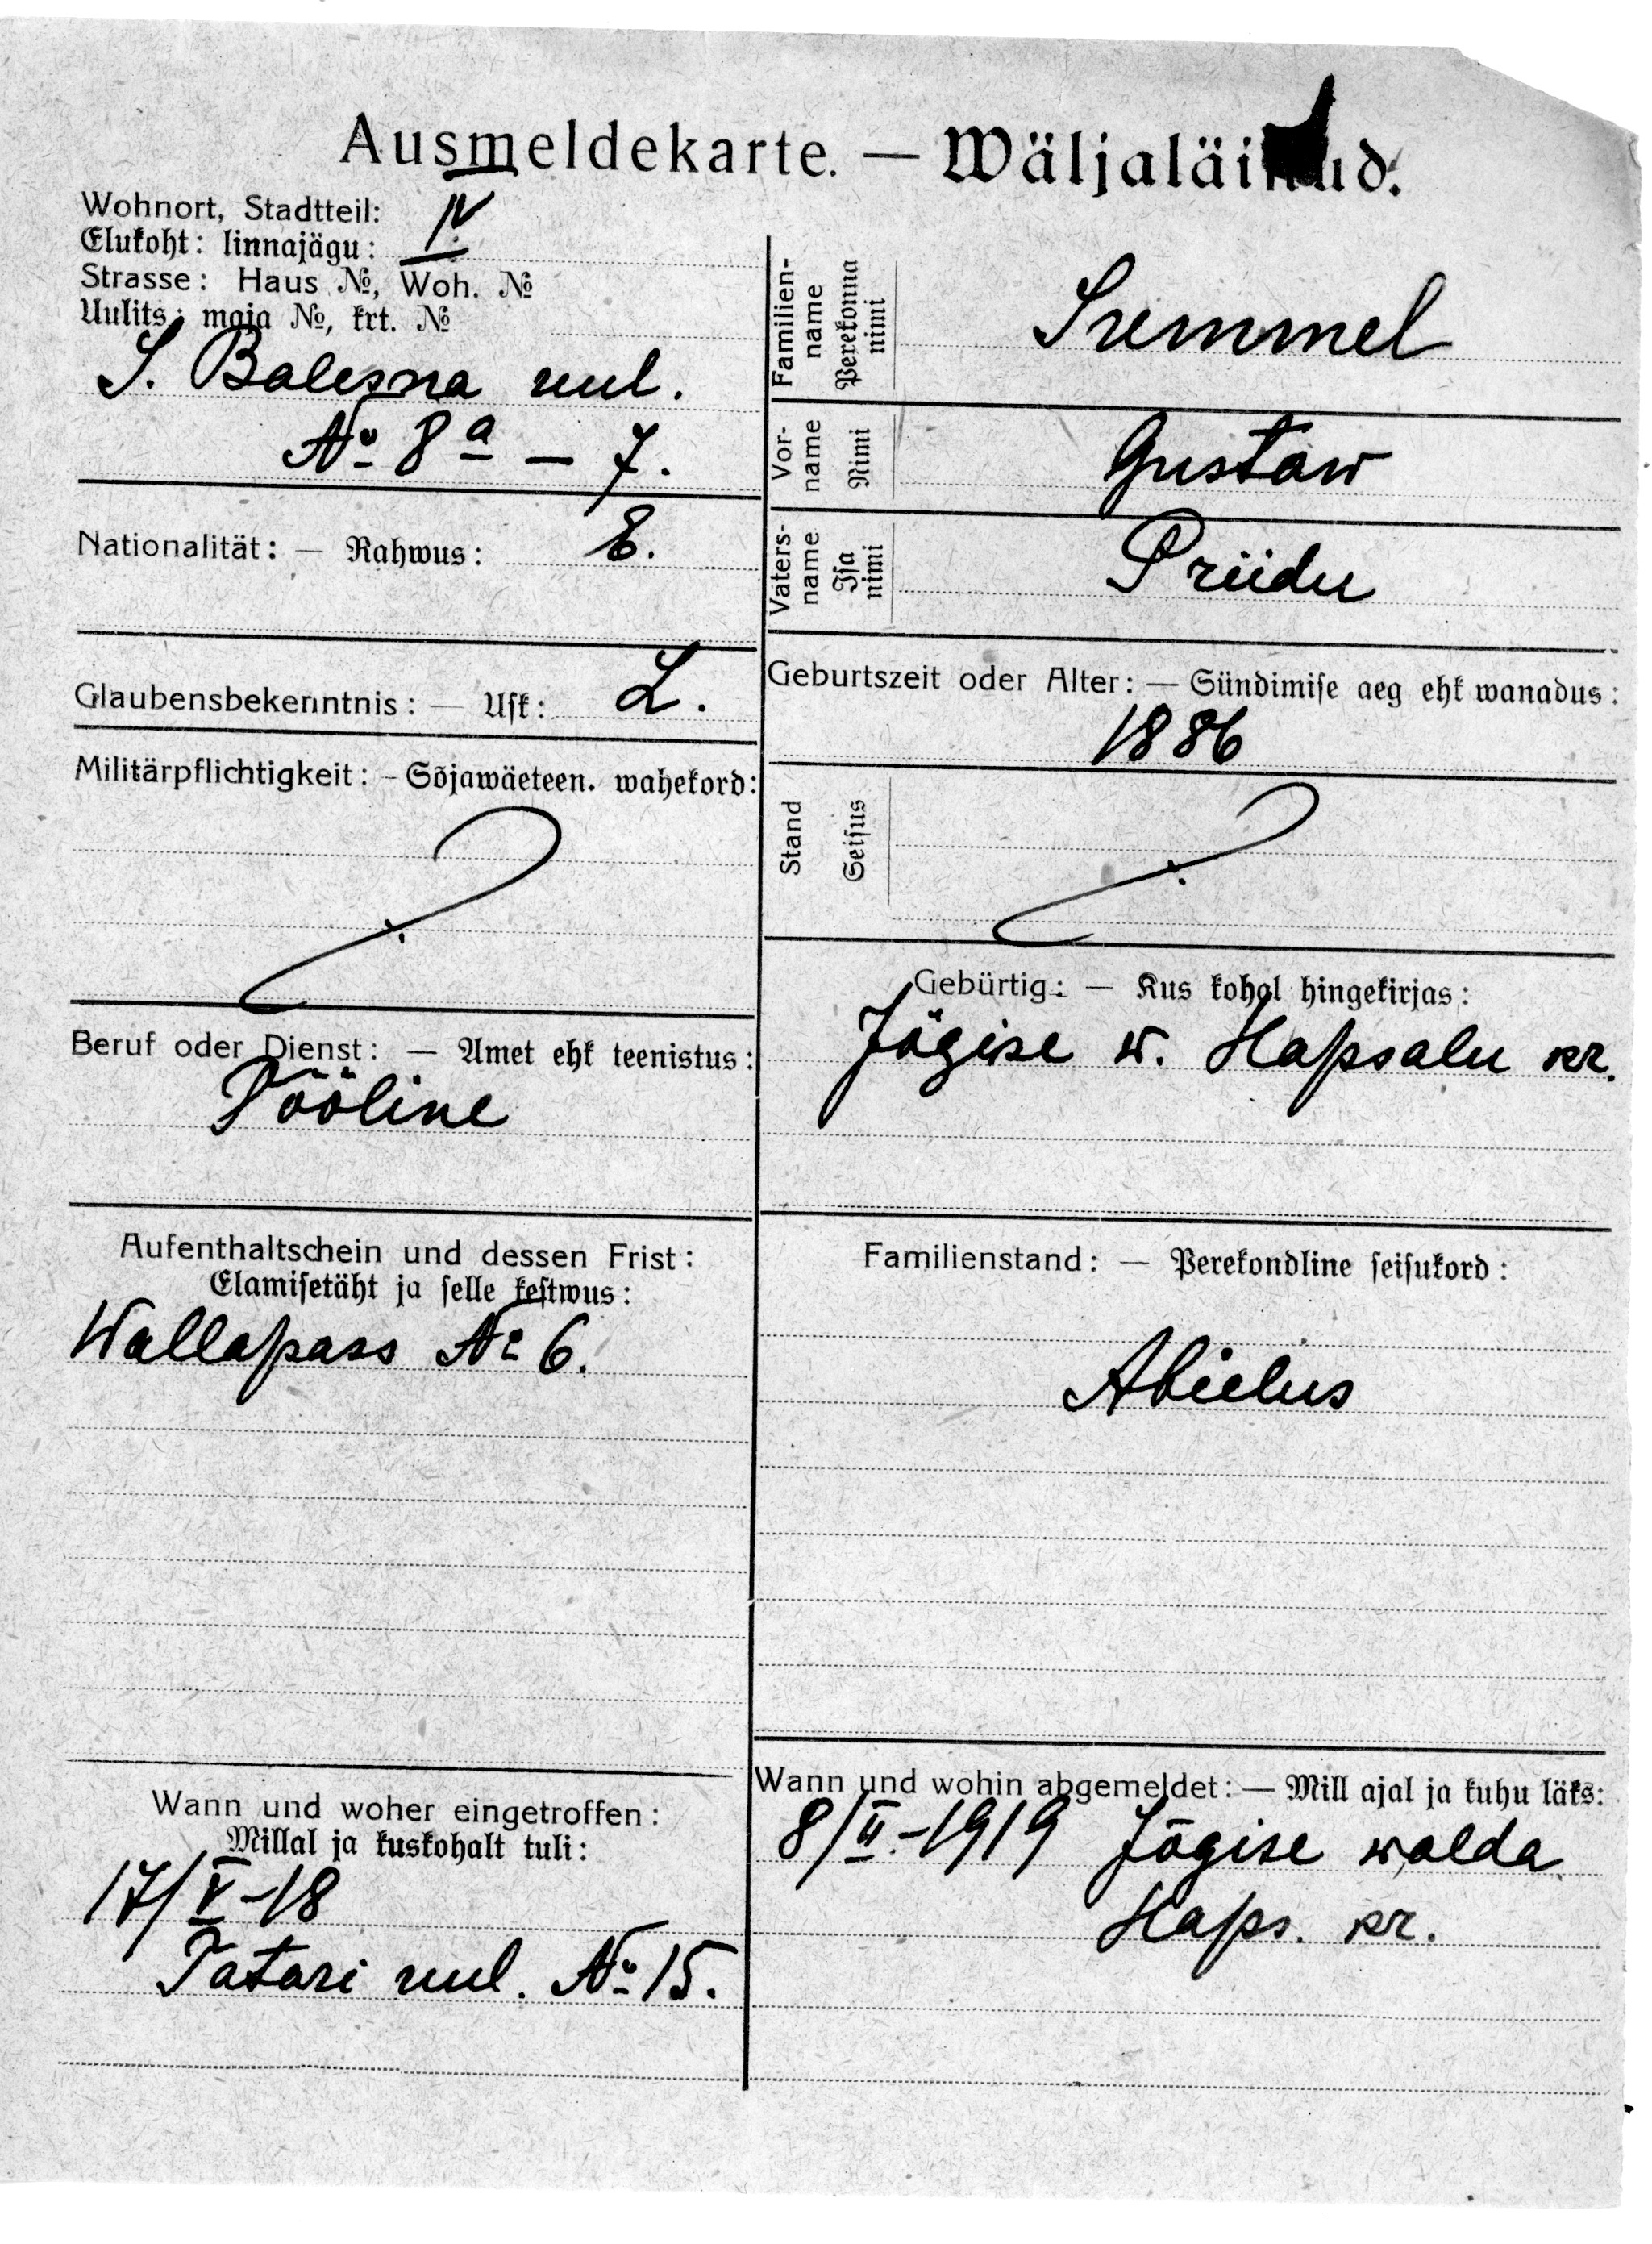 Ausmeldekarte. — Wäljaläinud.
Wohnort, Stadtteil: IV
Elukoht: linnajägu:
Strasse: Haus №, Woh. №
Uulits: maja №, krt. №
S. Balesna uul.
№ 8ª — 7.
Nationalität: — Rahwus: E.
Glaubensbekenntnis: — Usk: L.
Militärpflichtigkeit: — Sõjawäeteen. wahekord:
Beruf oder Dienst: — Amet ehk teenistus:
Tööline
Aufenthaltschein und dessen Frist:
Elamisetäht ja selle kestwus:
Wallapass № 6.
Wann und woher eingetroffen:
Millal ja kuskohalt tuli:
17/V-18
Tatari uul. № 15.
Familien-name Perekonna nimi
Sremmel
Vor-name Nimi
Gustaw
Vaters-name Isa nimi
Priidu
Geburtszeit oder Alter: — Sündimise aeg ehk wanadus:
1886
Stand Seisus
Gebürtig: — Kus kohal hingekirjas:
Jõgise w. Hapsalu kr.
Familienstand: — Perekondline seisukord:
Abielus
Wann und wohin abgemeldet: — Mill ajal ja kuhu läks:
8/II-1919 Jõgise walda
Haps. kr.